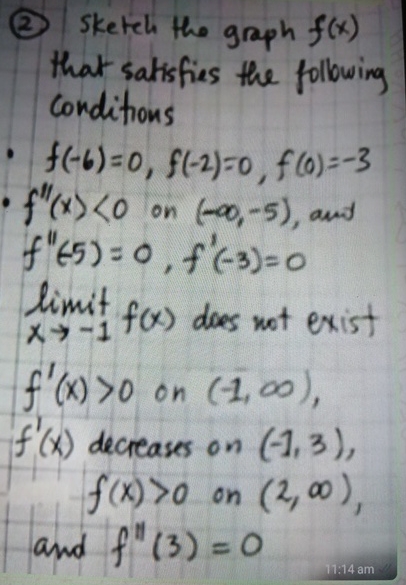 ② Sketch the graph f(x)
that satisfies the following
conditions
• f(-6)=0, f(-2)=0, f(0)=-3
• f"(x)<0 on (-∞,-5), and
f"(-5)=0, f'(-3)=0
limit f(x) does not exist
x→-1
f'(x)>0 on (-1,∞),
f'(x) decreases on (-1,3),
f(x)>0 on (2,∞),
and f"(3)=0
11:14 am